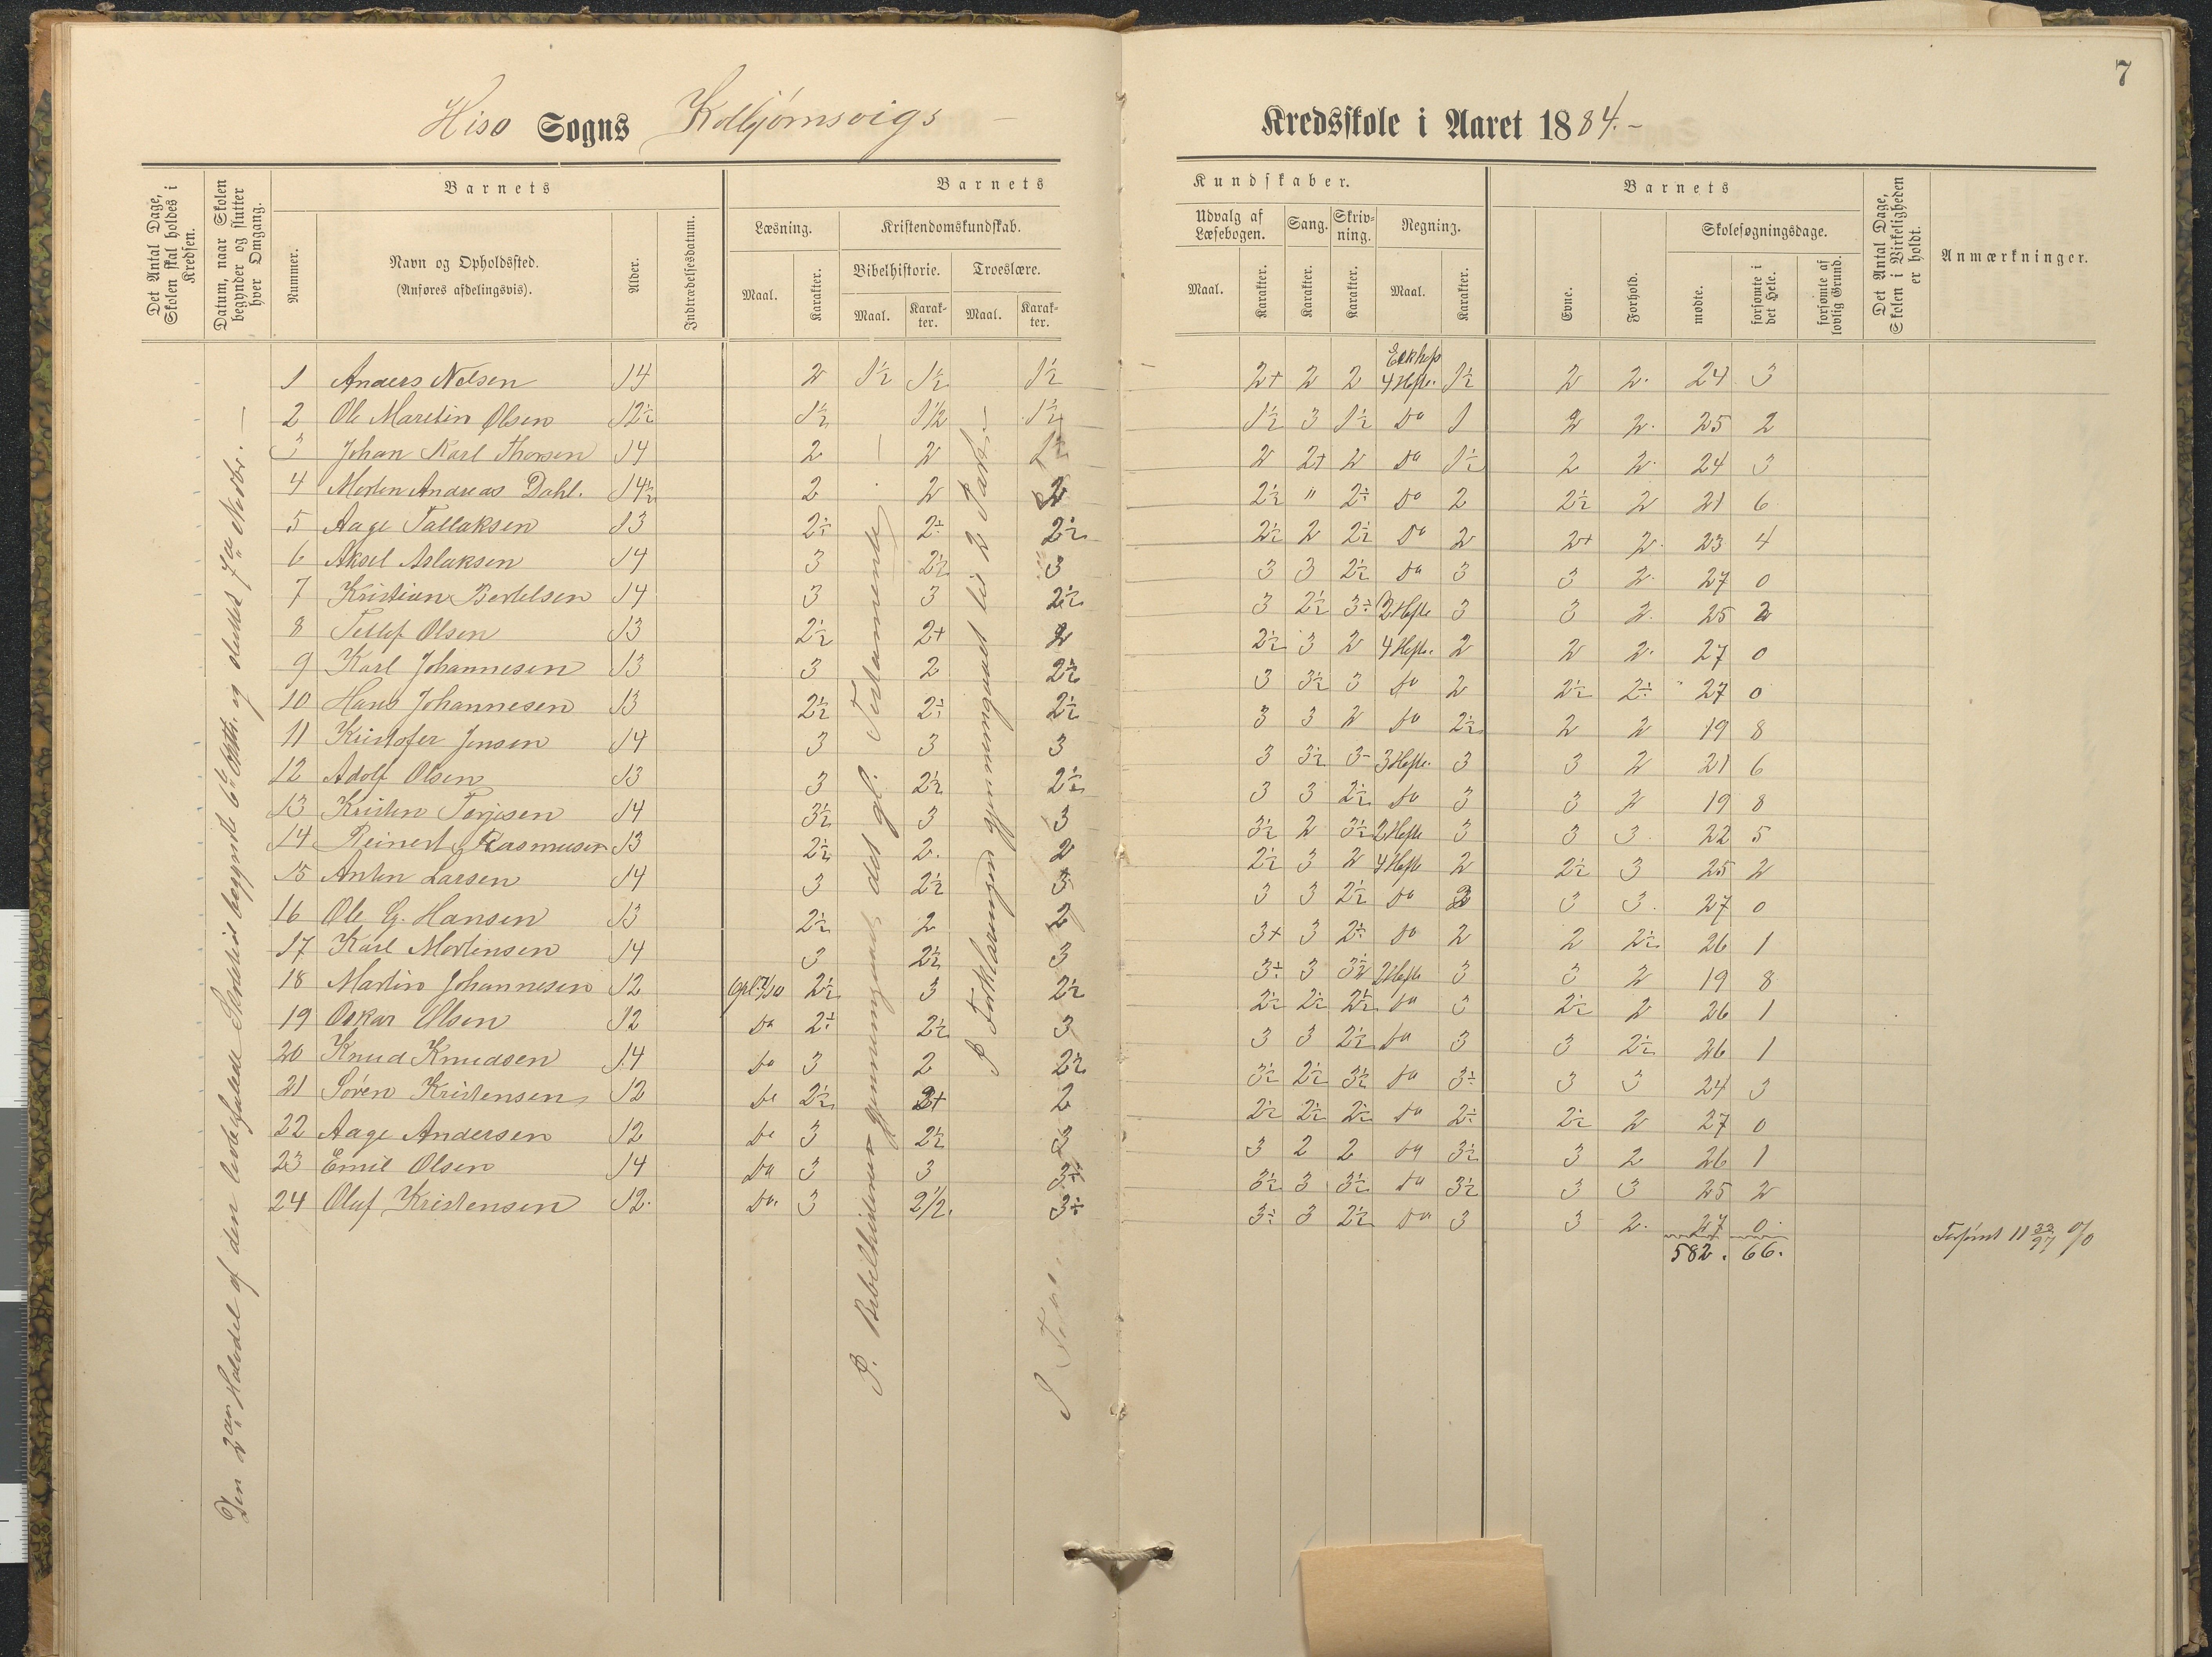 7
Hisø Sogns Kolbjørnsvigs Kredsskole i Aaret 1884.-
Det Antal Dage, Skolen skal holdes i Kredsen.
Datum, naar Skolen begynder og slutter hver Omgang.
Barnets
Nummer.
Navn og Opholdssted. (Anføres afdelingsvis).
Alder.
Indtrædelsesdatum.
Barnets Kundskaber.
Læsning.
Maal. Karakter.
Kristendomskundskab.
Bibelhistorie. Troeslære.
Maal. Karakter. Maal. Karakter.
Udvalg af Læsebogen. Sang. Skrivning. Regning.
Maal. Karakter. Karakter. Karakter. Maal. Karakter.
Barnets
Evne. Forhold.
Skolesøgningsdage.
mødte. forsømte i det Hele. forsømte af lovlig Grund.
Det Antal Dage, Skolen i Virkeligheden er holdt.
Anmærkninger.
1 Anders Nelsen 14 2 1½ 1½ 1½ 2+ 2 2 4 Hefte. 1½ 2 2. 24 3
2 Ole Martin Olsen 12½ 1½ 1½ 1½ 1½ 3 1½ do 1 2 2. 25 2
3 Johan Karl Thorsen 14 2 2 1½ 2 2+ 2 do 1½ 2 2. 24 3
4 Morten Andreas Dahl. 14½ 2 2 2 2½ " 2÷ do 2 2½ 2 21 6
5 Aage Tallaksen 13 2÷ 2÷ 2½ 2½ 2 2½ do 2 2+ 2. 23 4
6 Aksel Aslaksen 14 3 2½ 3 3 3 2½ do 3 3 2. 27 0
7 Kristian Bertelsen 14 3 3 2½ 3 2½ 3÷ 2 Hefte 3 3 2. 25 2
8 Tellef Olsen 13 2½ 2+ 2 2½ 3 2 4 Hefte. 2 2 2. 27 0
9 Karl Johannesen 13 3 2 2½ 3 3½ 3 do 2 2½ 2÷ 27 0
10 Hans Johannesen 13 2½ 2÷ 2½ 3 3 2 do 2½ 2 2 19 8
11 Kristofer Jensen 14 3 3 3 3 3½ 3- 3 Hefte. 3 3 2 21 6
12 Adolf Olsen 13 3 2½ 2½ 3 3 2½ do 3 3 2 19 8
13 Kristen Terjesen 14 3½ 3 3 3½ 2 3½ 2 Hefte 3 3 3. 22 5
14 Reinert Rasmusen 13 2½ 2. 2 2½ 3 2 4 Hefte 2 2½ 3 25 2
15 Anten Larsen 14 3 2½ 3 3 3 2½ do 3 3. 27 0
16 Ole G. Hansen 13 2½ 2 2 3+ 3 2÷ do 2 2 2½ 26 1
17 Karl Mortensen 14 3 2½ 3 3÷ 3 3½ 2 Hefte 3 3 2 19 8
18 Martin Johannesen 12 2½ 3 2½ 2½ 2½ 2½ do 3 2½ 2 26 1
19 Oskar Olsen 12 do 2÷ 2½ 3 3 3 2½ do 3 3 2½ 26 1
20 Knud Knudsen 14 do 3 2 2½ 3½ 2½ 3½ do 3÷ 3 3 24 3
21 Søren Kristensen 12 do 2½ 2+ 2 2½ 2½ 2½ do 2÷ 2½ 2 27 0
22 Aage Andersen 12 do 3 2½ 3 3 2 2 do 3½ 3 2 26 1
23 Emil Olsen 14 do 3 3 3÷ 3½ 3 3½ do 3½ 3 3 25 2
24 Oluf Kristensen 12. do. 3 2½. 3÷ 3÷ 3 2½ do 3 3 2. 27 0.
582. 66.
Forsømt 11 0/0
Den 2den Halvdel af den befalede Skoletid begyndte 6te Oktbr. og sluttet 7de Novbr. —
I Bibelhistorien gjennemgaaet det gl. Testamente
I Forklaringen gjennemgaaet til 2 Part. —